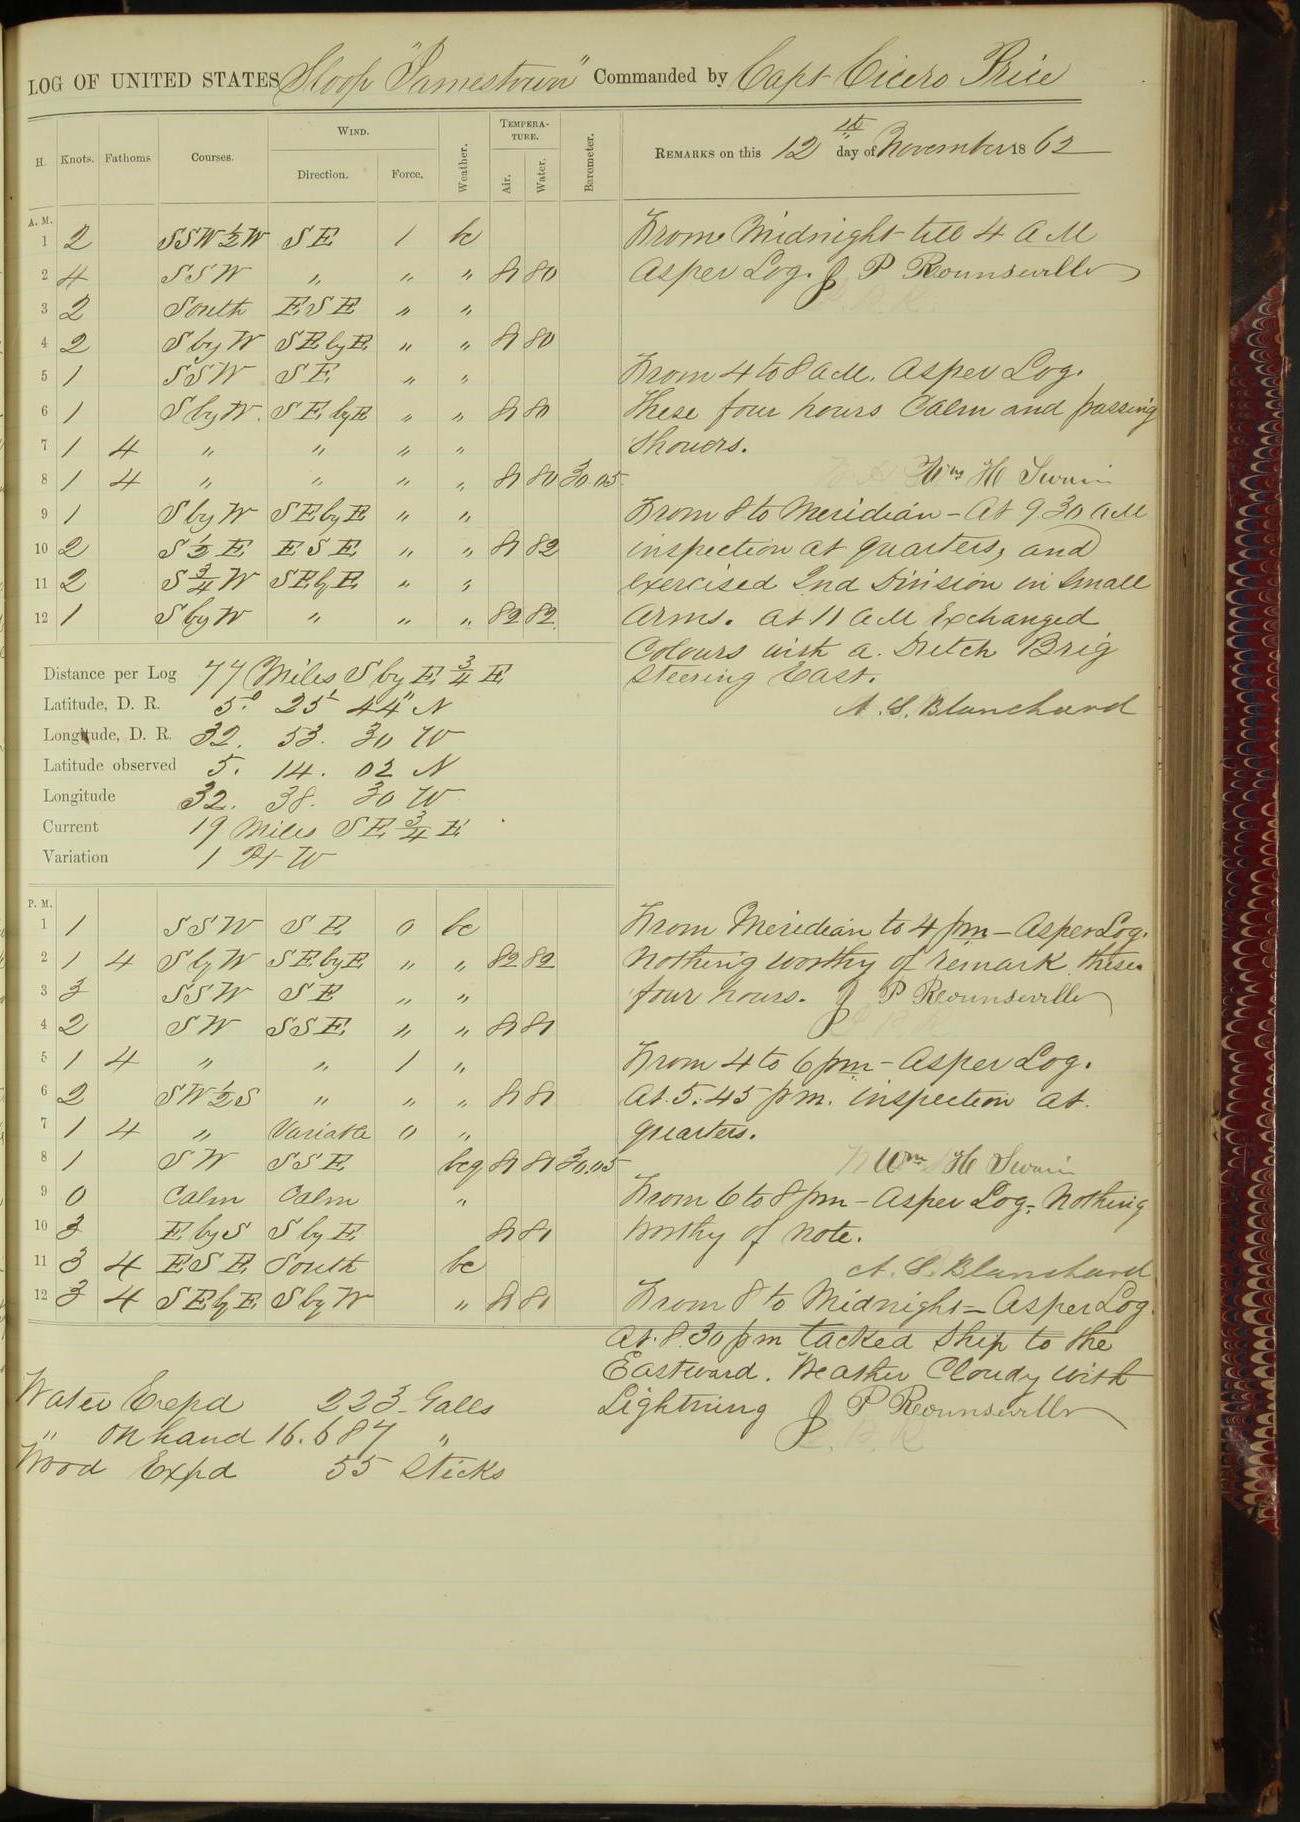 LOG OF UNITED STATES Sloop "Jamestown" Commanded by Capt Cicero Price
H. Knots. Fathoms Courses. WIND. Direction. Force. Weather. TEMPERATURE. Air. Water. Barometer. REMARKS on this 12th day of November 1862
A. M.
1 2 SSW½W SE 1 bc
2 4 SSW " " " 81 80
3 2 South ESE " "
4 2 S by W SE by E " " 81 80
5 1 SSW SE " "
6 1 S by W. SE by E " " 81 80
7 1 4 " " " "
8 1 4 " " " " 81 80 30.05
9 1 S by W SE by E " "
10 2 S½E ESE " " 81 82
11 2 S¾W SE by E " "
12 1 S by W " " " 82 82
From Midnight till 4 A M
As per Log. J P Rounsevill
From 4 to 8 A M. As per Log.
These four hours Calm and passing
Showers.
Wm H Swain
From 8 to Meridian - At 9.30 A M
inspection at quarters, and
exercised 2nd Division in Small
Arms. At 11 A M Exchanged
Colours with a Dutch Brig
Steering East.
A. S. Blanchard
Distance per Log 77 Miles S by E ¾ E
Latitude, D. R. 5.° 25' 44" N
Longitude, D. R. 32. 53. 30 W
Latitude observed 5. 14. 02 N
Longitude 32. 38. 30 W
Current 19 Miles SE ¾ E
Variation 1 Pt W
P. M.
1 1 SSW SE 0 bc
2 1 4 S by W SE by E " " 82 82
3 3 SSW SE " "
4 2 SW SSE " " 81 81
5 1 4 " " 1 "
6 2 SW½S " " " 81 81
7 1 4 " Variable 0 "
8 1 SW SSE bcq 81 81 30.05
9 0 Calm Calm "
10 3 E by S S by E 81 81
11 3 4 ESE South bc
12 3 4 SE by E S by W " 81 81
From Meridian to 4 pm - As per Log.
Nothing worthy of remark these
four hours. J P Rounsevill
From 4 to 6 pm - As per Log.
At 5.45 pm. inspection at
quarters.
Wm H Swain
From 6 to 8 pm - As per Log. Nothing
worthy of note.
A. S. Blanchard
From 8 to Midnight - As per Log.
At 8.30 pm tacked Ship to the
Eastward. Weather Cloudy with
Lightning J P Rounsevill
Water Expd 223 Galls
" On hand 16.687 "
Wood Expd 55 Sticks